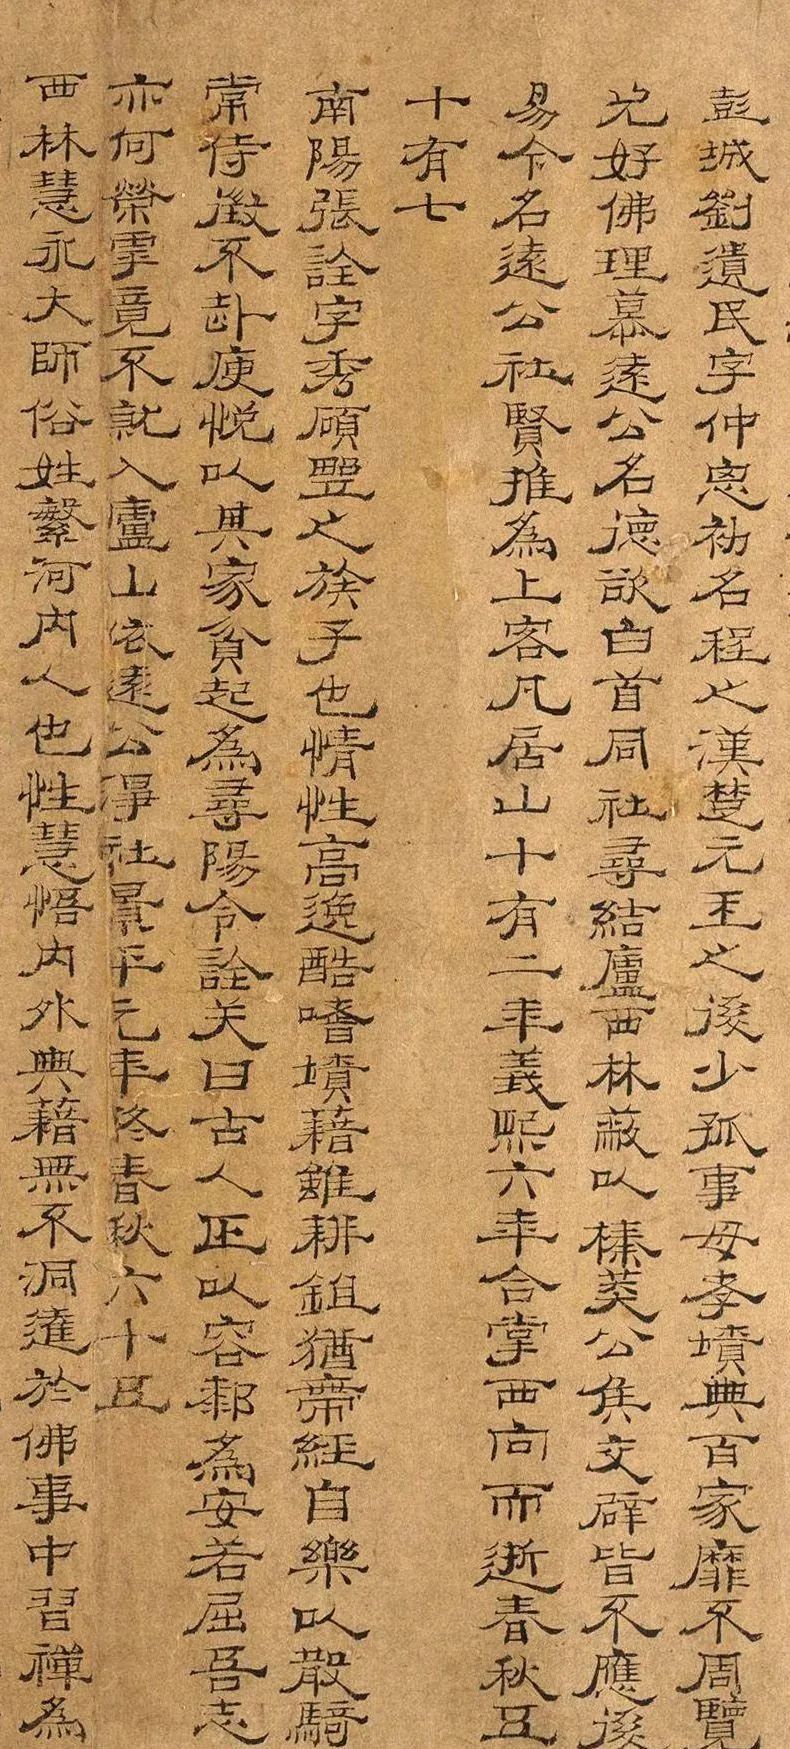 彭城劉遺民字仲思初名程之漢楚元王之後少孤事母孝墳典百家靡不周覽
尤好佛理慕遠公名德欲白首同社尋結廬西林蔽以榛莽公侯交辟皆不應後
易今名遠公社賢推為上客凡居山十有二年義熙六年合掌西向而逝春秋五
十有七
南陽張詮字秀碩野之族子也情性高逸酷嗜墳藉雖耕鉏猶帶經自樂以散騎
常侍徵不赴庾悅以其家貧起為尋陽令詮笑曰古人正以容郄為安若屈吾志
亦何榮乎竟不就入廬山依遠公淨社景平元年終春秋六十五
西林慧永大師俗姓繁河內人也性慧悟內外典藉無不洞達於佛事中習禪為